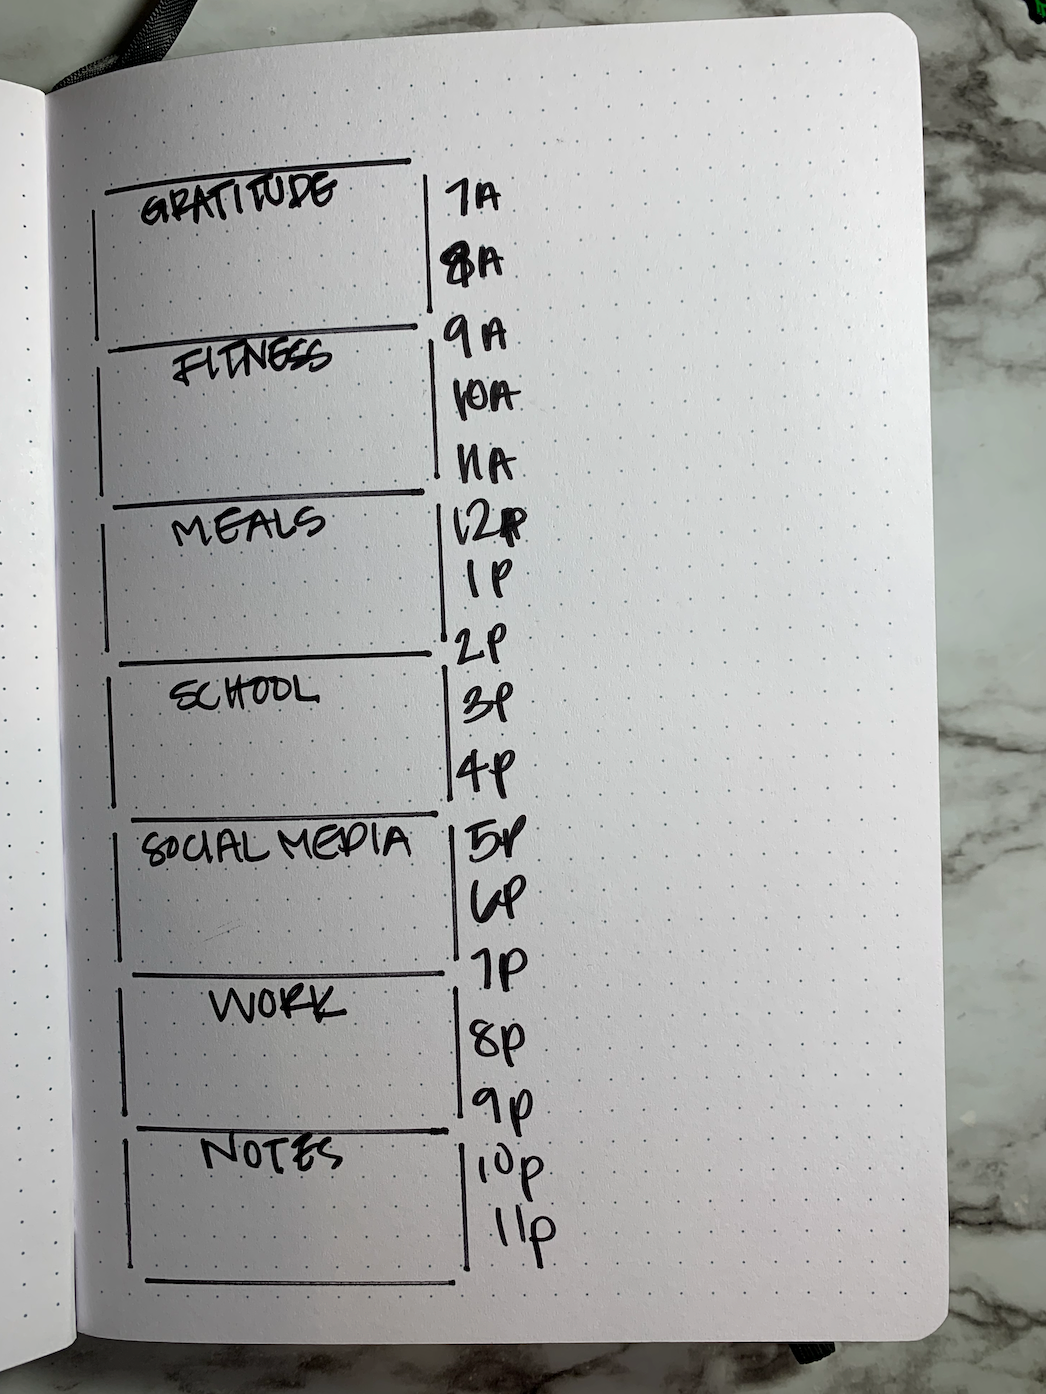 GRATITUDE
FITNESS
MEALS
SCHOOL
SOCIAL MEDIA
WORK
NOTES
7A
8A
9A
10A
11A
12P
1P
2P
3P
4P
5P
6P
7P
8P
9P
10P
11P